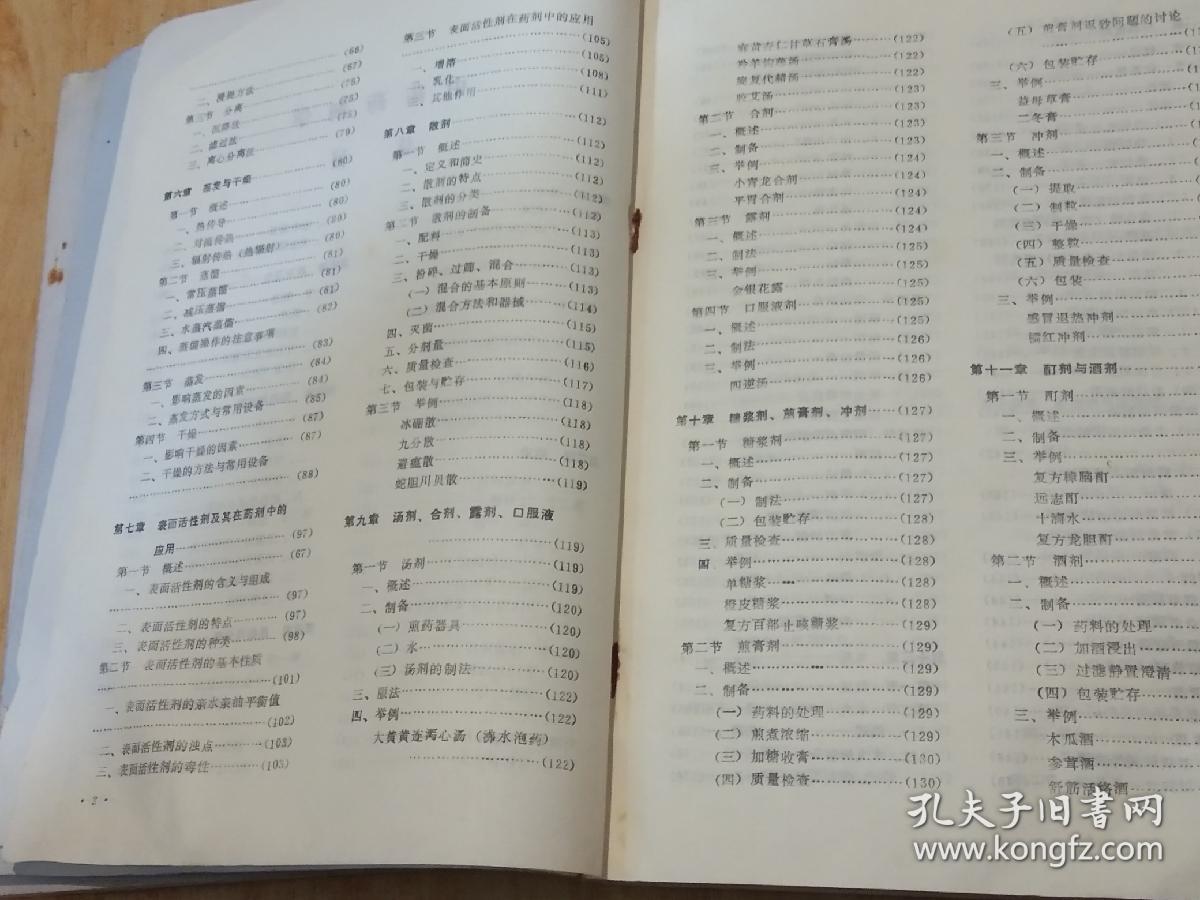 (66)
(67)
二、浸提方法 (75)
第三节 分离 (75)
一、沉降法 (75)
二、滤过法
三、离心分离法 (79)
第六章 蒸发与干燥 (80)
第一节 概述 (80)
一、热传导 (80)
二、对流传热 (80)
三、辐射传热（热辐射） (80)
第二节 蒸馏 (81)
一、常压蒸馏 (81)
二、减压蒸馏 (81)
三、水蒸汽蒸馏 (82)
四、蒸馏操作的注意事项
(83)
第三节 蒸发 (84)
一、影响蒸发的因素 (84)
二、蒸发方式与常用设备 (85)
第四节 干燥 (87)
一、影响干燥的因素 (87)
二、干燥的方法与常用设备
(88)
第七章 表面活性剂及其在药剂中的
应用 (97)
第一节 概述 (67)
一、表面活性剂的含义与组成
(97)
二、表面活性剂的特点 (97)
三、表面活性剂的种类 (98)
第二节 表面活性剂的基本性质
(101)
一、表面活性剂的亲水亲油平衡值
(102)
二、表面活性剂的浊点 (103)
三、表面活性剂的毒性 (103)
· 2 ·
第三节 表面活性剂在药剂中的应用
(105)
一、增溶 (105)
二、乳化 (108)
三、其他作用 (111)
第八章 散剂 (112)
第一节 概述 (112)
一、定义和简史 (112)
二、散剂的特点 (112)
三、散剂的分类 (112)
第二节 散剂的制备 (112)
一、配料 (113)
二、干燥 (113)
三、粉碎、过筛、混合 (113)
（一）混合的基本原则 (113)
（二）混合方法和器械 (114)
四、灭菌 (115)
五、分剂量 (115)
六、质量检查 (116)
七、包装与贮存 (117)
第三节 举例 (118)
冰硼散 (118)
九分散 (118)
避瘟散 (118)
蛇胆川贝散 (119)
第九章 汤剂、合剂、露剂、口服液
(119)
第一节 汤剂 (119)
一、概述 (119)
二、制备 (120)
（一）煎药器具 (120)
（二）水 (120)
（三）汤剂的制法 (120)
三、服法 (122)
四、举例 (122)
大黄黄连泻心汤（沸水泡药）
(122)
麻黄杏仁甘草石膏汤 (122)
羚羊钩藤汤 (122)
旋复代赭汤 (122)
胶艾汤 (123)
第二节 合剂 (123)
一、概述 (123)
二、制备 (123)
三、举例 (124)
小青龙合剂 (124)
平胃合剂 (124)
第三节 露剂 (124)
一、概述 (124)
二、制法 (125)
三、举例 (125)
金银花露 (125)
第四节 口服液剂 (125)
一、概述 (125)
二、制法 (126)
三、举例 (126)
四逆汤 (126)
第十章 糖浆剂、煎膏剂、冲剂 (127)
第一节 糖浆剂 (127)
一、概述 (127)
二、制备 (127)
（一）制法 (127)
（二）包装贮存 (128)
三、质量检查 (128)
四、举例 (128)
单糖浆 (128)
橙皮糖浆 (128)
复方百部止咳糖浆 (129)
第二节 煎膏剂 (129)
一、概述 (129)
二、制备 (129)
（一）药料的处理 (129)
（二）煎煮浓缩 (129)
（三）加糖收膏 (130)
（四）质量检查 (130)
（五）煎膏剂返砂问题的讨论
（六）包装贮存
三、举例
益母草膏
二冬膏
第三节 冲剂
一、概述
二、制备
（一）提取
（二）制粒
（三）干燥
（四）整粒
（五）质量检查
（六）包装
三、举例
感冒退热冲剂
橘红冲剂
第十一章 酊剂与酒剂
第一节 酊剂
一、概述
二、制备
三、举例
复方樟脑酊
远志酊
十滴水
复方龙胆酊
第二节 酒剂
一、概述
二、制备
（一）药料的处理
（二）加酒浸出
（三）过滤静置澄清
（四）包装贮存
三、举例
木瓜酒
参茸酒
舒筋活络酒
孔夫子旧书网
www.kongfz.com